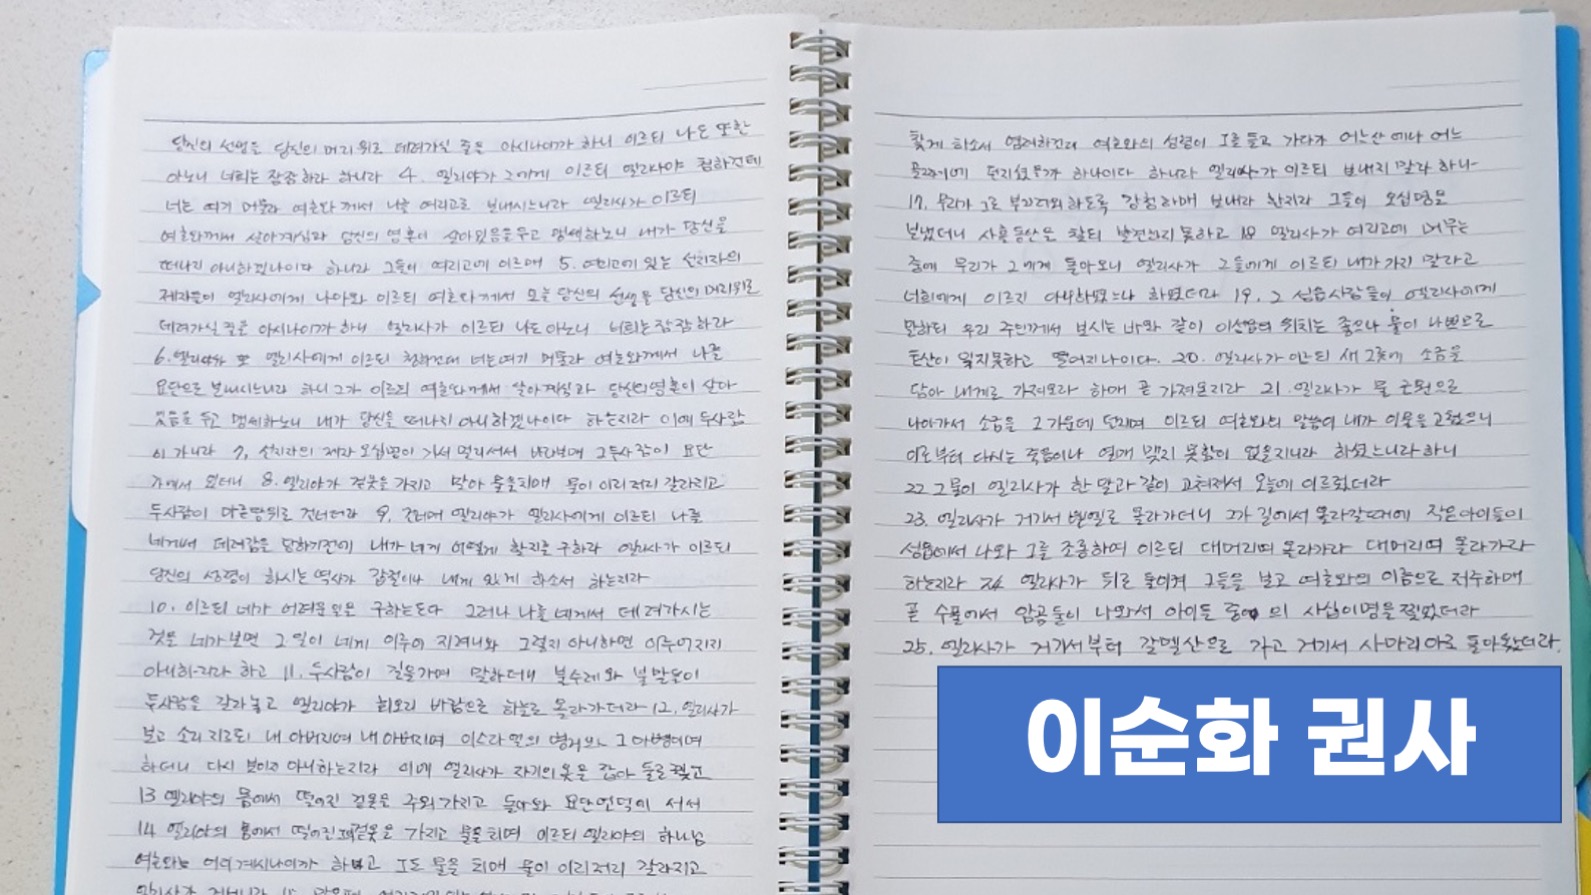 당신의 선생을 당신의 머리 위로 데려가실 줄은 아시나이까 하니 이르되 나도 또한
아노니 너희는 잠잠하라 하니라 4. 엘리야가 그에게 이르되 엘리사야 청하건데
너는 여기 머물라 여호와께서 나를 여리고로 보내시느니라 엘리사가 이르되
여호와께서 살아계심과 당신의 영혼이 살아있음을 두고 맹세하노니 내가 당신을
떠나지 아니하겠나이다 하니라 그들이 여리고에 이르매 5. 여리고에 있는 선지자의
제자들이 엘리사에게 나아와 이르되 여호와께서 오늘 당신의 선생을 당신의 머리위로
데려가실 줄을 아시나이까 하니 엘리사가 이르되 나도 아노니 너희는 잠잠하라
6. 엘리야가 또 엘리사에게 이르되 청하건데 너는 여기 머물라 여호와께서 나를
요단으로 보내시느니라 하니 그가 이르되 여호와께서 살아계심과 당신의 영혼이 살아
있음을 두고 맹세하노니 내가 당신을 떠나지 아니하겠나이다 하는지라 이에 두사람
이 가니라 7. 선지자의 제자 오십명이 가서 멀리서서 바라보매 그 두사람이 요단
가에서 있더니 8. 엘리야가 겉옷을 가지고 말아 물을 치매 물이 이리저리 갈라지고
두사람이 마른 땅위로 건너더라 9. 건너매 엘리야가 엘리사에게 이르되 나를
네게서 데려감을 당하기전에 내가 네게 어떻게 할지를 구하라 엘리사가 이르되
당신의 성령이 하시는 역사가 갑절이나 내게 있게 하소서 하는지라
10. 이르되 네가 어려운 일을 구하는도다 그러나 나를 네게서 데려가시는
것을 네가 보면 그 일이 네게 이루어 지려니와 그렇지 아니하면 이루어지지
아니하리라 하고 11. 두사람이 길을 가며 말하더니 불수레와 불말들이
두사람을 갈라놓고 엘리야가 회오리 바람으로 하늘로 올라가더라 12. 엘리사가
보고 소리 지르되 내 아버지여 내 아버지여 이스라엘의 병거와 그 마병이여
하더니 다시 보이지 아니하는지라 이에 엘리사가 자기의 옷을 잡아 둘로 찢고
13 엘리야의 몸에서 떨어진 겉옷을 주워 가지고 돌아와 요단 언덕에 서서
14 엘리야의 몸에서 떨어진 겉옷을 가지고 물을 치며 이르되 엘리야의 하나님
여호와는 어디 계시나이까 하고 그도 물을 치매 물이 이리저리 갈라지고
찾게 하소서 염려하건대 여호와의 성령이 그를 들고 가다가 어느 산에나 어느
골짜기에 던지셨을까 하나이다 하니라 엘리사가 이르되 보내지 말라 하나
17. 무리가 그로 부끄러워 하도록 강청하매 보내라 한지라 그들이 오십명을
보냈더니 사흘동안을 찾되 발견하지 못하고 18 엘리사가 여리고에 머무는
중에 무리가 그에게 돌아오니 엘리사가 그들에게 이르되 내가 가지 말라고
너희에게 이르지 아니하였느냐 하였더라 19. 그 성읍 사람들이 엘리사에게
말하되 우리 주인께서 보시는 바와 같이 이 성읍의 위치는 좋으나 물이 나쁘므로
토산이 익지못하고 떨어지나이다. 20. 엘리사가 이르되 새 그릇에 소금을
담아 내게로 가져오라 하매 곧 가져온지라 21. 엘리사가 물 근원으로
나아가서 소금을 그 가운데 던지며 이르되 여호와의 말씀이 내가 이 물을 고쳤으니
이로부터 다시는 죽음이나 열매 맺지 못함이 없을지니라 하셨느니라 하니
22 그 물이 엘리사가 한 말과 같이 고쳐져서 오늘에 이르렀더라
23. 엘리사가 거기서 벧엘로 올라가더니 그가 길에서 올라갈 때에 작은 아이들이
성읍에서 나와 그를 조롱하여 이르되 대머리여 올라가라 대머리여 올라가라
하는지라 24 엘리사가 뒤로 돌이켜 그들을 보고 여호와의 이름으로 저주하매
곧 수풀에서 암곰 둘이 나와서 아이들 중의 사십이명을 찢었더라
25. 엘리사가 거기서부터 갈멜산으로 가고 거기서 사마리아로 돌아왔더라.
이순화 권사